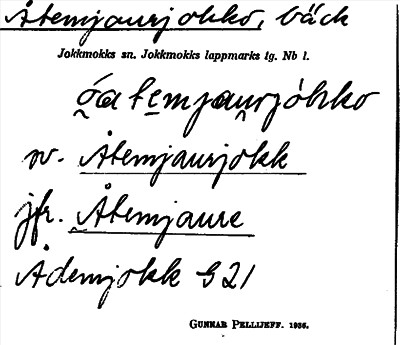 Åtemjaurjohko, bäck
Jokkmokks sn. Jokkmokks lappmarks tg. Nb l.
ȯ̯á tęmjau̯rjóhko
sv. Åtemjaurjokk
jfr. Åtemjaure
Ådemjokk G 21
GUNNAR PELLIJEFF. 1936.